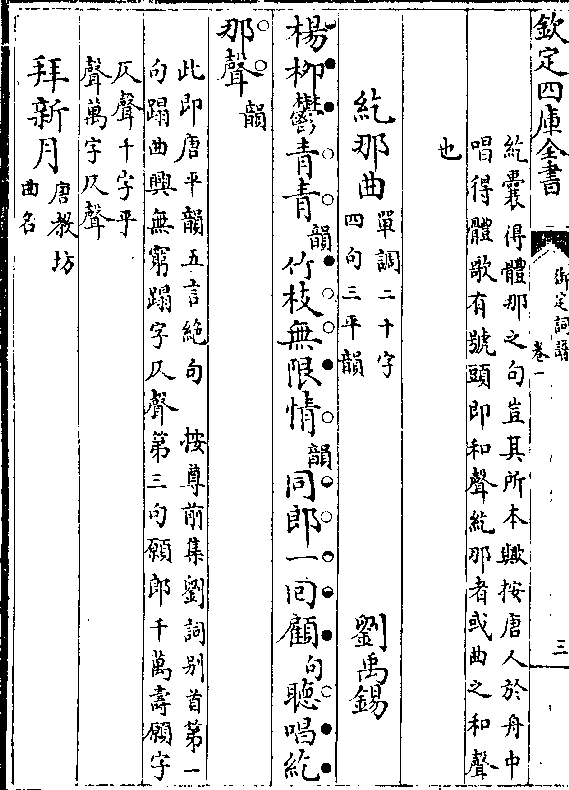 欽定四庫全書
御定詞譜
卷一
三
紇囊得體那之句豈其所本歟按唐人於舟中
唱得體歌有號頭即和聲紇那者或曲之和聲
也
紇那曲 單調二十字
四句三平韻 劉禹錫
楊柳鬱青青韻竹枝無限情韻同郎一回顧句聽唱紇
那聲韻
此即唐平韻五言絶句 按尊前集劉詞别首第一
句蹋曲興無窮蹋字仄聲第三句願郎千萬壽願字
仄聲千字平
聲萬字仄聲
拜新月 唐教坊
曲名